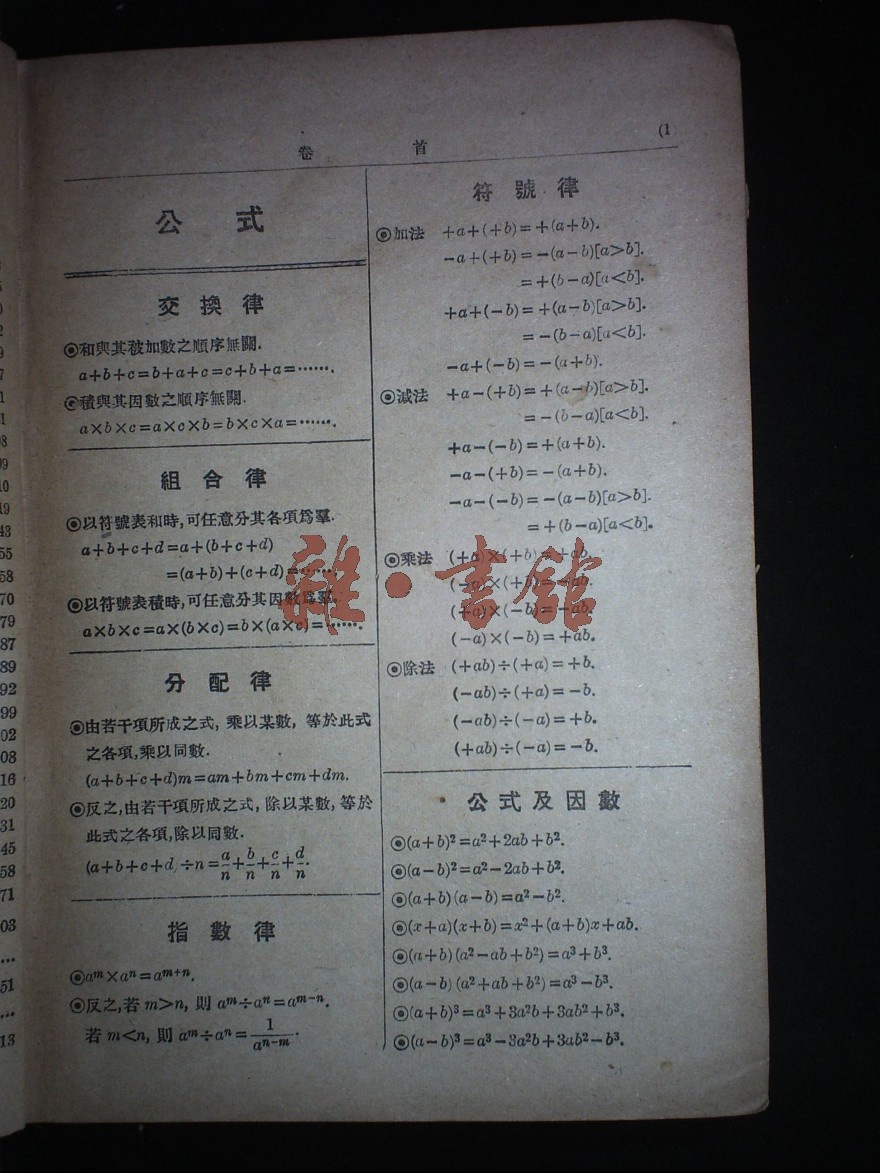 卷 首 (1
公 式
交 換 律
◉和與其被加數之順序無關.
a+b+c=b+a+c=c+b+a=…….
◉積與其因數之順序無關.
a×b×c=a×c×b=b×c×a=…….
組 合 律
◉以符號表和時,可任意分其各項爲羣.
a+b+c+d=a+(b+c+d)
=(a+b)+(c+d)=…….
◉以符號表積時,可任意分其因數爲羣.
a×b×c=a×(b×c)=b×(a×c)=…….
分 配 律
◉由若干項所成之式, 乘以某數, 等於此式
之各項,乘以同數.
(a+b+c+d)m=am+bm+cm+dm.
◉反之,由若干項所成之式, 除以某數, 等於
此式之各項,除以同數.
(a+b+c+d)÷n=a/n+b/n+c/n+d/n.
指 數 律
◉aᵐ×aⁿ=aᵐ⁺ⁿ.
◉反之,若 m>n, 則 aᵐ÷aⁿ=aᵐ⁻ⁿ.
若 m<n, 則 aᵐ÷aⁿ=1/aⁿ⁻ᵐ.
符 號 律
◉加法 +a+(+b)=+(a+b).
-a+(+b)=-(a-b)[a>b].
=+(b-a)[a<b].
+a+(-b)=+(a-b)[a>b].
=-(b-a)[a<b].
-a+(-b)=-(a+b).
◉減法 +a-(+b)=+(a-b)[a>b].
=-(b-a)[a<b].
+a-(-b)=+(a+b).
-a-(+b)=-(a+b).
-a-(-b)=-(a-b)[a>b].
=+(b-a)[a<b].
◉乘法 (+a)×(+b)=+ab.
(-a)×(+b)=-ab.
(+a)×(-b)=-ab.
(-a)×(-b)=+ab.
◉除法 (+ab)÷(+a)=+b.
(-ab)÷(+a)=-b.
(-ab)÷(-a)=+b.
(+ab)÷(-a)=-b.
公式及因數
◉(a+b)²=a²+2ab+b².
◉(a-b)²=a²-2ab+b².
◉(a+b)(a-b)=a²-b².
◉(x+a)(x+b)=x²+(a+b)x+ab.
◉(a+b)(a²-ab+b²)=a³+b³.
◉(a-b)(a²+ab+b²)=a³-b³.
◉(a+b)³=a³+3a²b+3ab²+b³.
◉(a-b)³=a³-3a²b+3ab²-b³.
雜·書館